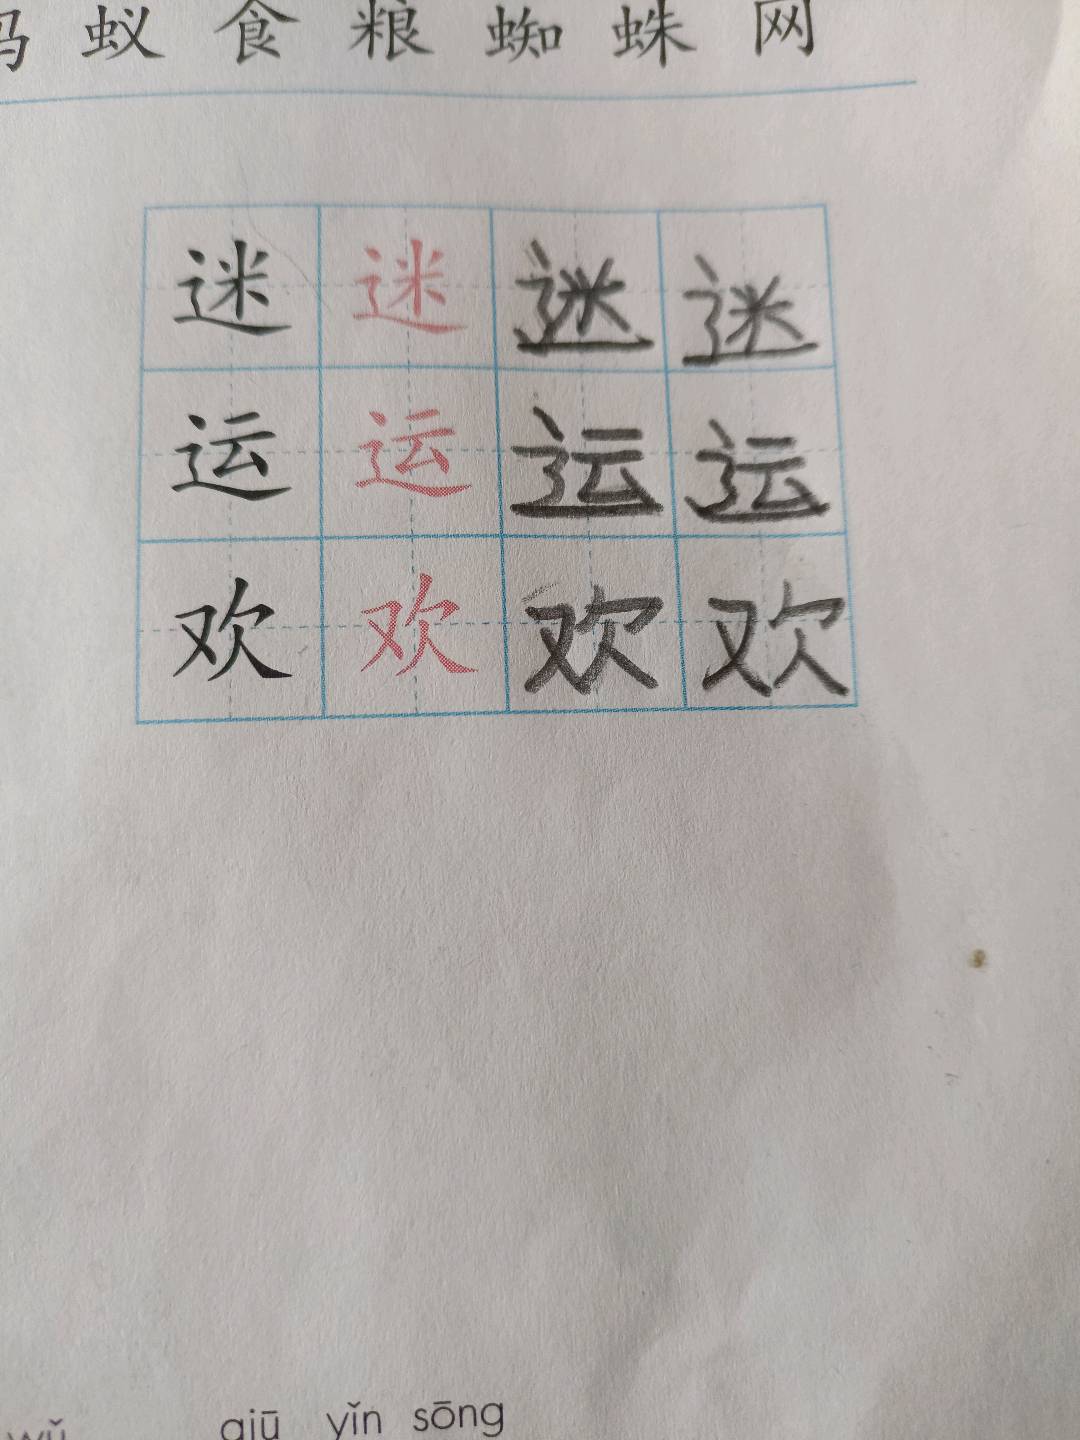 蚂 蚁 食 粮 蜘 蛛 网
迷 迷 迷 迷
运 运 运 运
欢 欢 欢 欢
wǔ qiū yǐn sōng